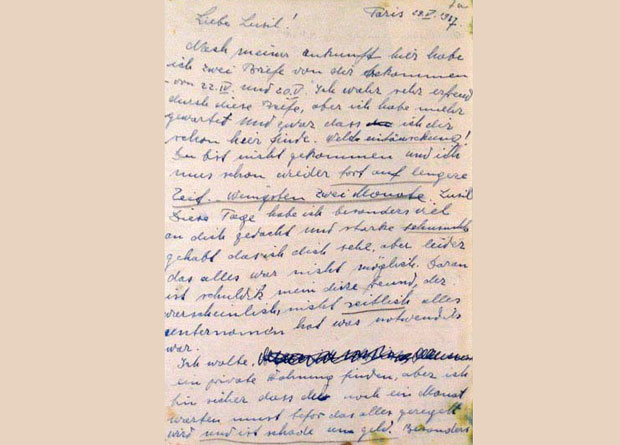 Paris 28.V. 1937
Liebe Lusil!
Nach meiner ankunft hier habe
ich zwei Briefe von dir bekommen
- von 22.IV und 20.V. Ich wahr sehr erfreud
durch diese Briefe, aber ich habe mehr
gewartet und zwar dass ich dir
schon hier finde. Welch entäuschung!
Du bist nicht gekommen und ich
mus schon wieder fort auf lengere
Zeit - wenigsten zwei Monate. Lusil
Diese Tage habe ich besonders viel
an dich gedacht und starke sehnsucht
gehabt das ich dich sehe, aber leider
das alles war nicht möglich. Daran
ist schuldik mein freund, der
warscheinlich nicht zeitlich alles
unternomen hat was notwendik
war.
Ich wolte,
ein private Wohnung finden, aber ich
bin sicher dass du noch ein Monat
warten must befor das alles geregelt
wird und ist schade um geld. Besonders